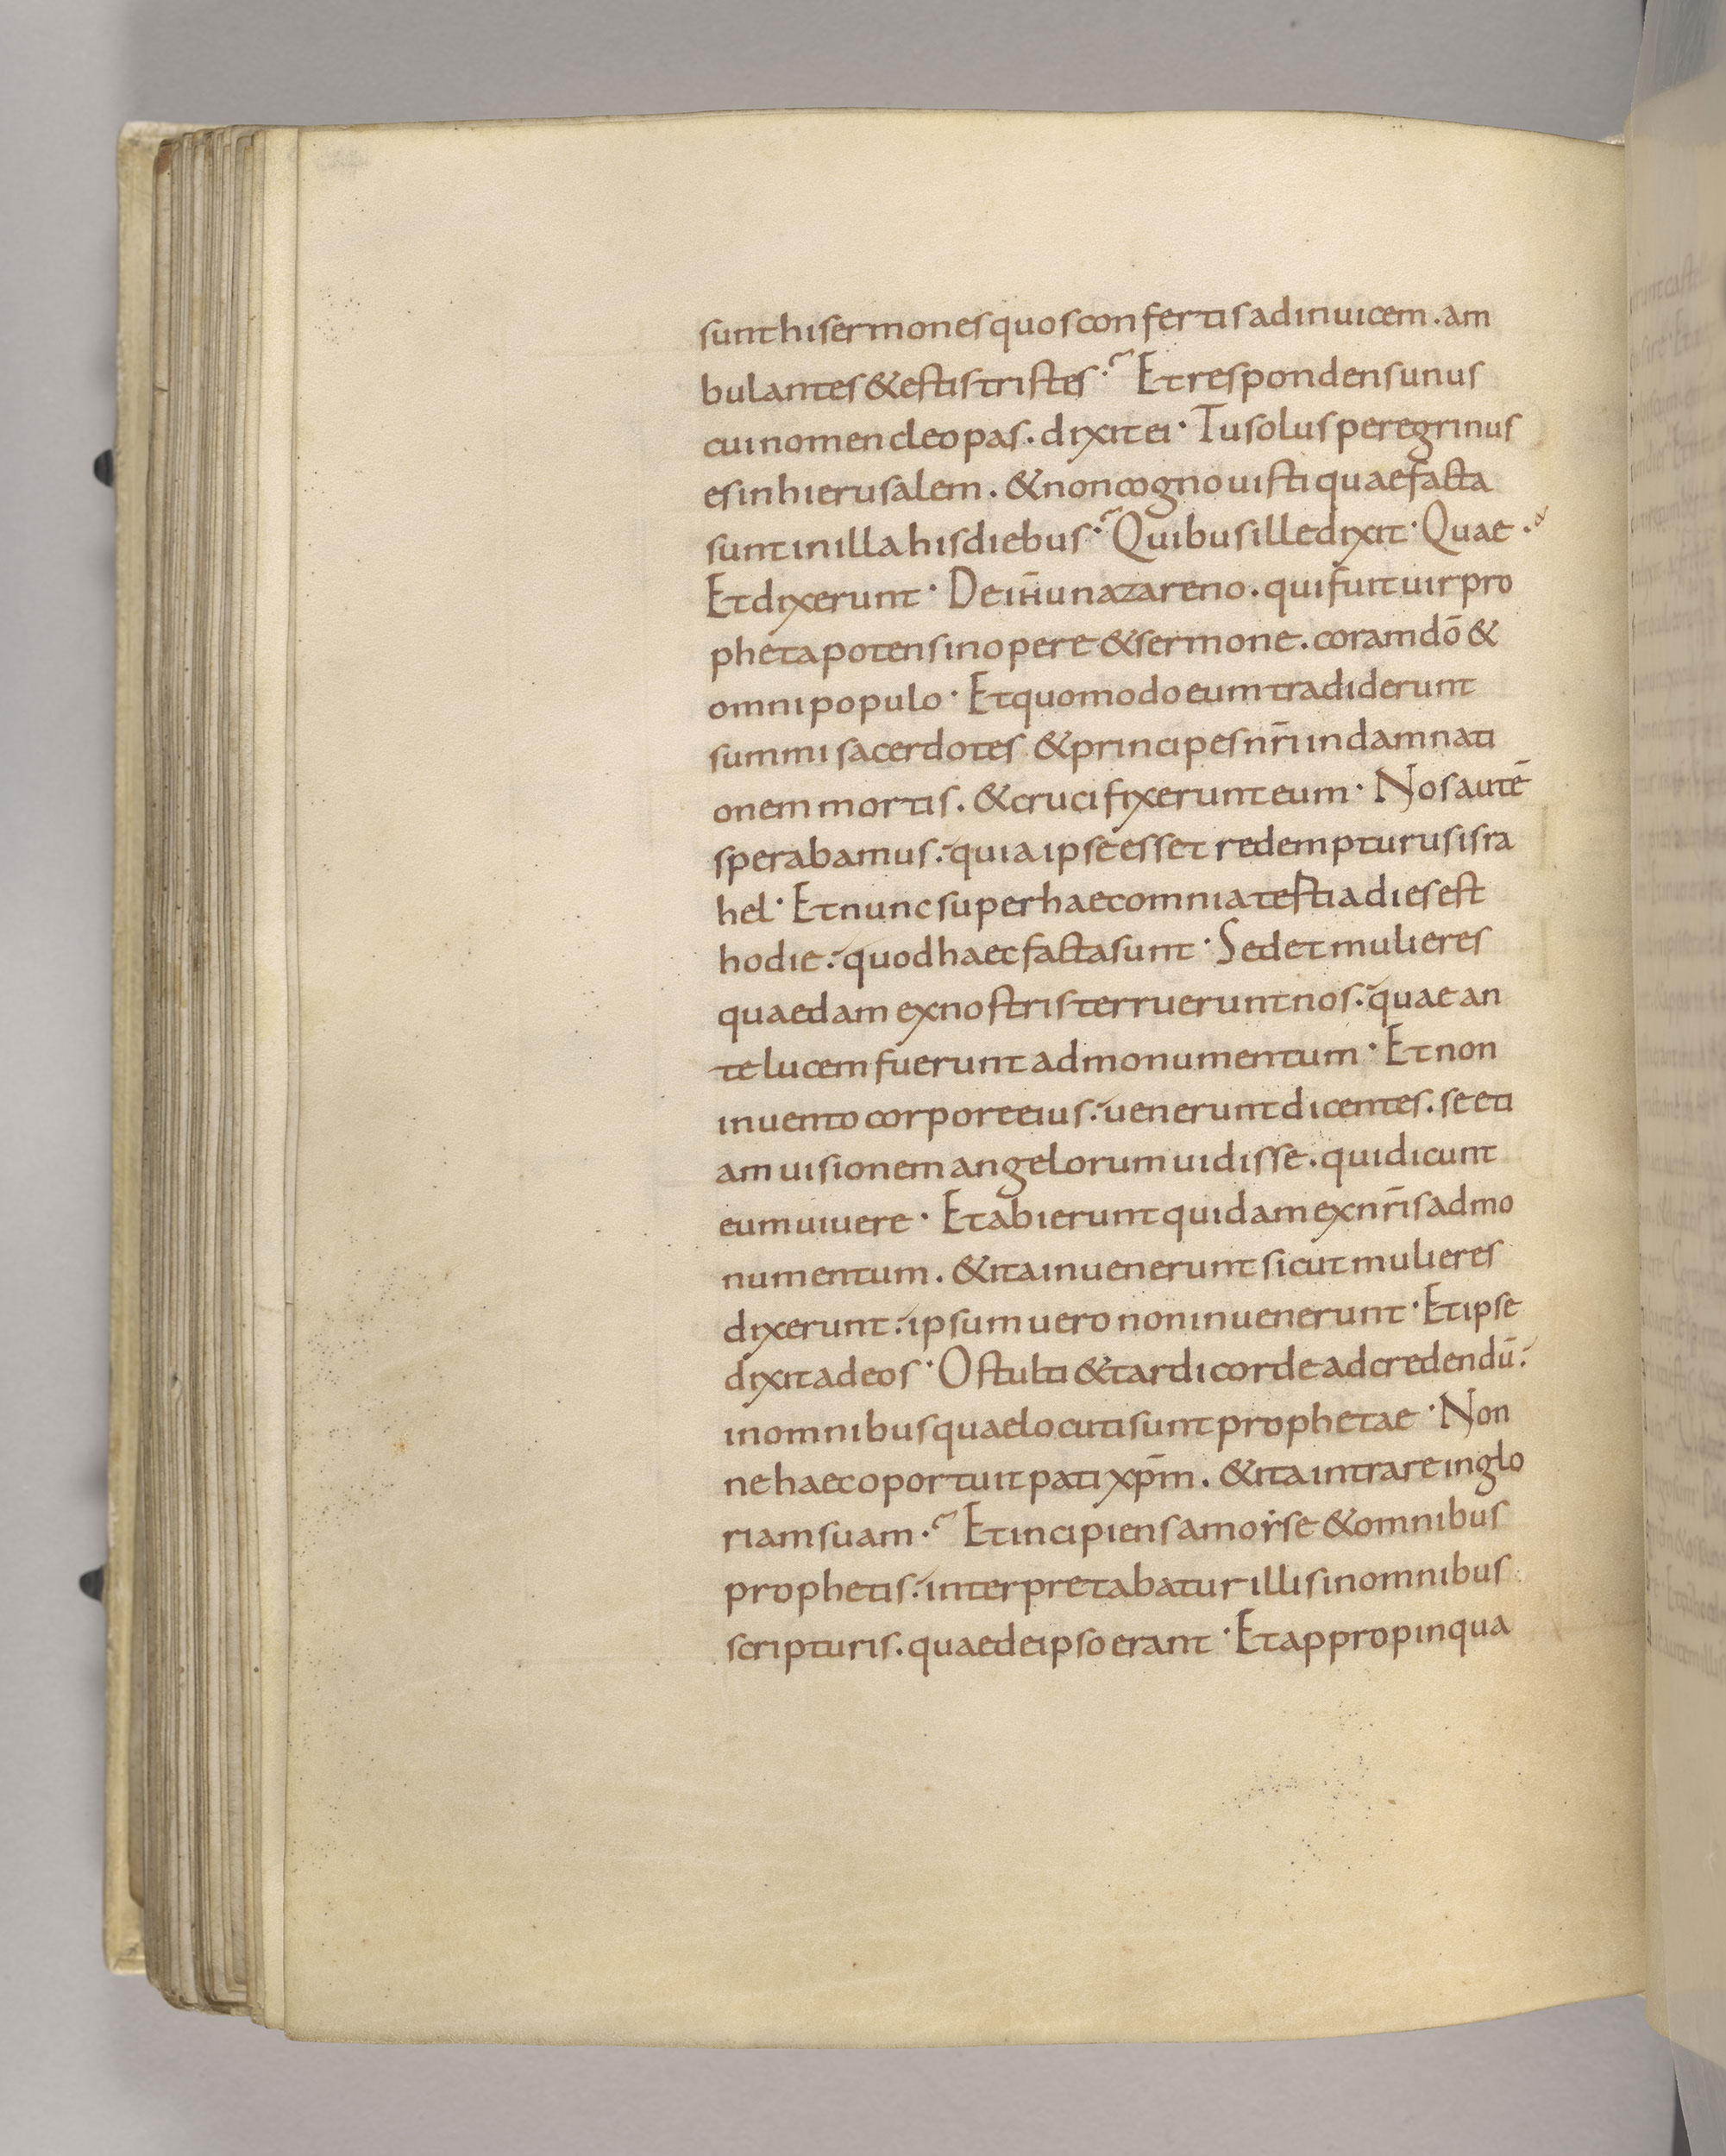 sunt hi sermones quos confertis adinuicem. am
bulantes & estis tristes? Et respondens unus
cui nomen cleopas. dixit ei· Tu solus peregrinus
es in hierusalem. & non cognouisti quae facta
sunt in illa his diebus? Quibus ille dixit· Quae?
Et dixerunt· De ih̄u nazareno. qui fuit uir pro
pheta potens in opere & sermone. coram dō &
omni populo· Et quomodo eum tradiderunt
summi sacerdotes & principes nr̄i in damnati
onem mortis. & crucifixerunt eum· Nos autē
sperabamus: quia ipse esset redempturus isra
hel· Et nunc super haec omnia testia dies est
hodie: quod haec facta sunt· Sed et mulieres
quaedam ex nostris terruerunt nos: quae an
te lucem fuerunt ad monumentum· Et non
inuento corpore eius: uenerunt dicentes. se eti
am uisionem angelorum uidisse. qui dicunt
eum uiuere· Et abierunt quidam ex nr̄is ad mo
numentum. & ita inuenerunt sicut mulieres
dixerunt: ipsum uero non inuenerunt· Et ipse
dixit ad eos· O stulti & tardi corde ad credendū:
in omnibus quae locuti sunt prophetae· Non
ne haec oportuit pati xp̄m. & ita intrare in glo
riam suam? Et incipiens a morse & omnibus
prophetis: interpretabatur illis in omnibus
scripturis. quae de ipso erant· Et appropinqua